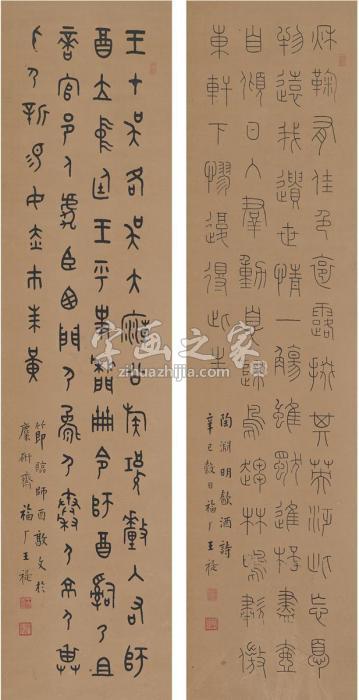 秌鞠有佳色裛露掇其英汎此忘憂
物遠我遺世情一觴雖獨進桮盡壺
自傾日入羣動息歸鳥趨林鳴嘯傲
東軒下憀復得此生
陶淵明飲酒詩
辛巳穀日福厂王禔
王才吳各吳大廟公族釐入右師
酉立中廷王乎史冊令師酉嗣乃且
啻官邑人虎臣西門尸尸秦尸京尸畀
尸新易女赤市朱黃
節臨師酉敦文於
麋研齋福厂王禔
字画之家
zihuazhijia.com